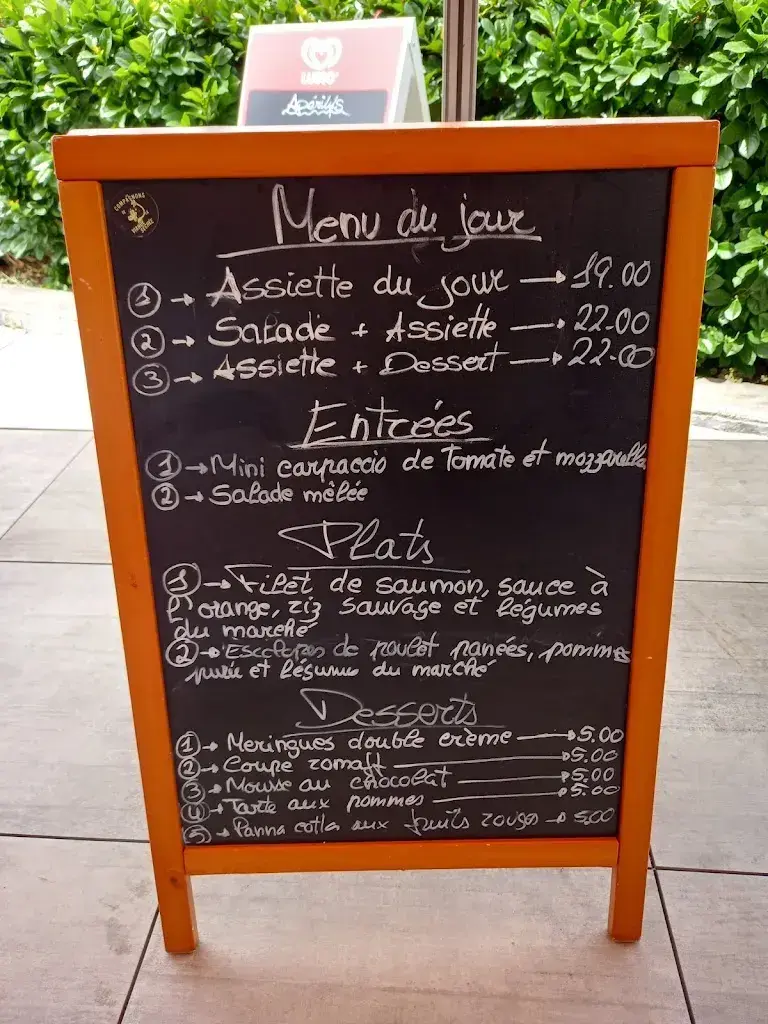 LUSSO
Apéritifs
COMPAGNONS
Menu du jour
1 → Assiette du jour → 19.00
2 → Salade + Assiette → 22.00
3 → Assiette + Dessert → 22.00
Entrées
1 → Mini carpaccio de tomate et mozzarella
2 → Salade mêlée
Plats
1 → Filet de saumon, sauce à
l'orange, riz sauvage et légumes
du marché
2 → Escalopes de poulet panées, pommes
purée et légumes du marché
Desserts
1 → Meringues double crème → 5.00
2 → Coupe romaff → 5.00
3 → Mousse au chocolat → 5.00
4 → Tarte aux pommes → 5.00
5 → Panna cotta aux fruits rouges → 5.00